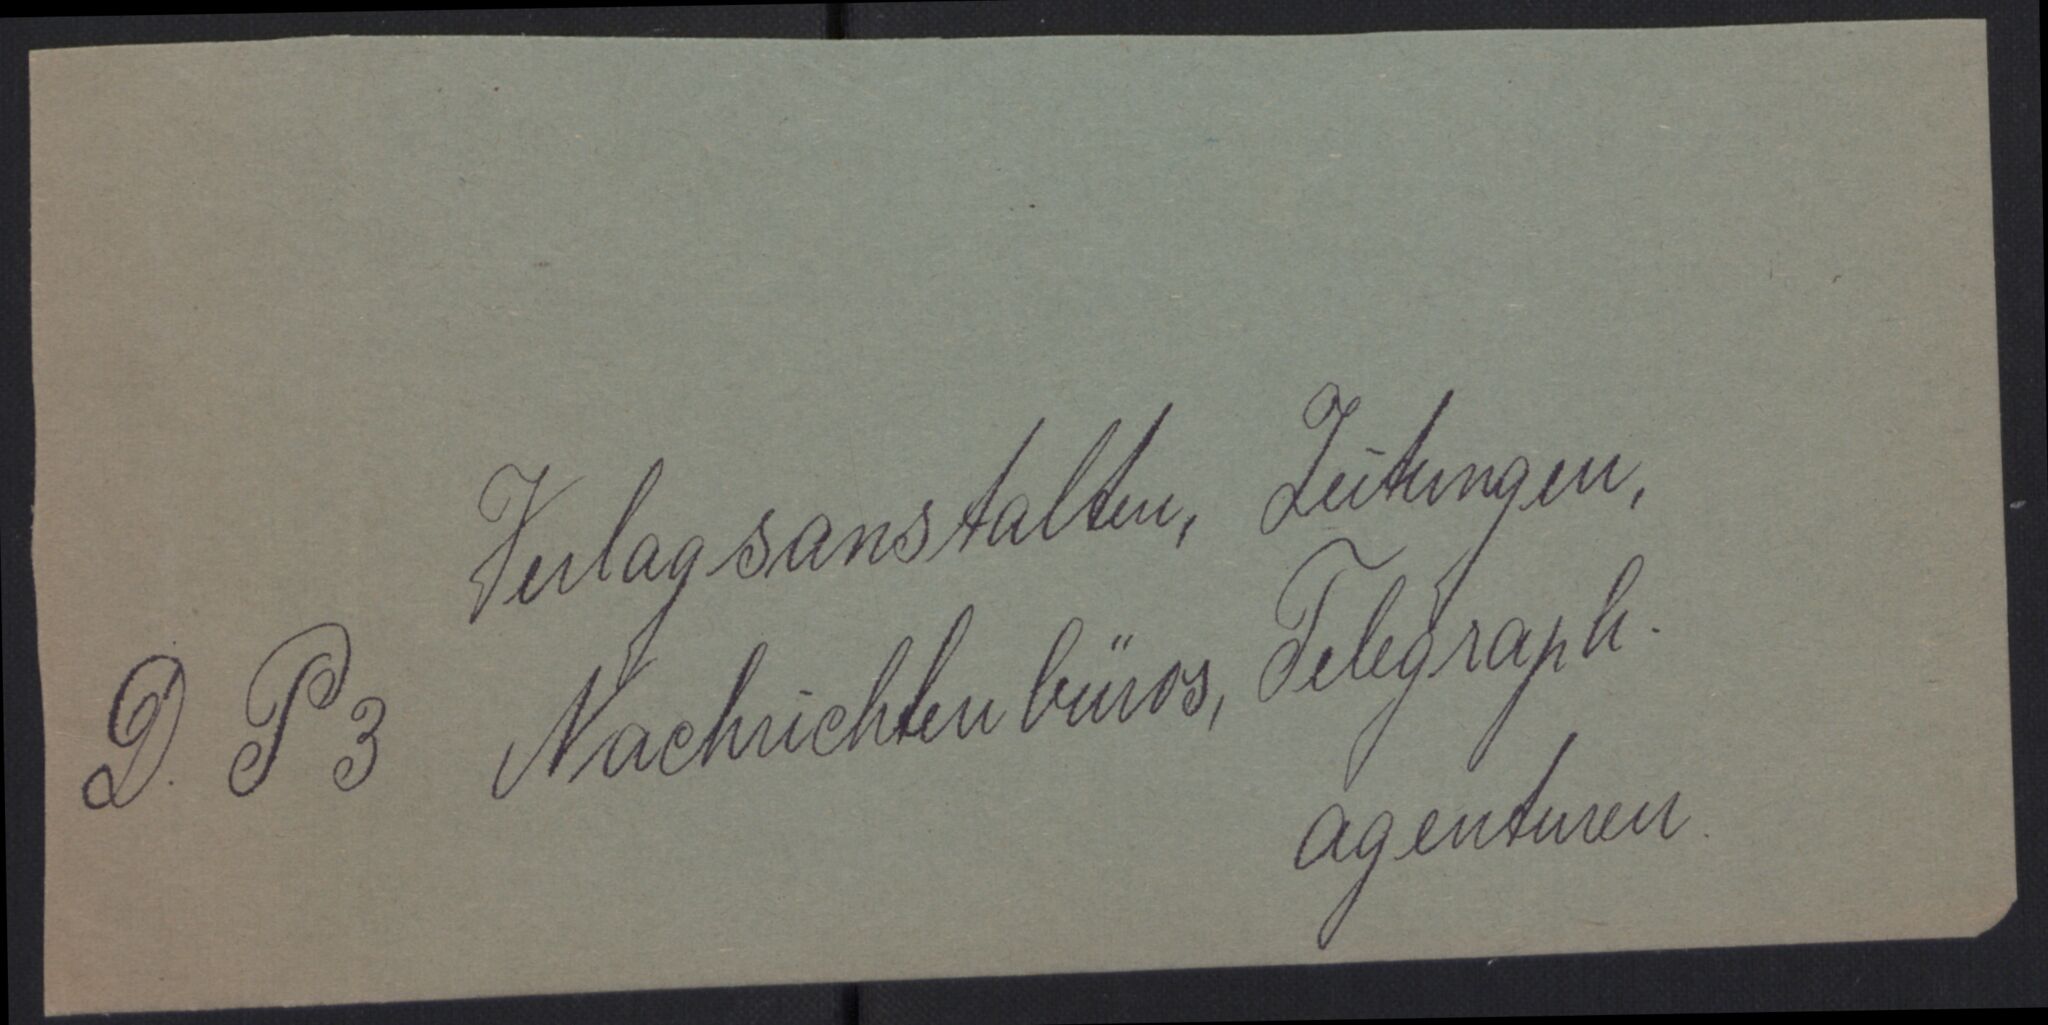 Verlagsanstalten, Zeitungen,
D. P3 Nachrichtenbüros, Telegraph.
agenturen.